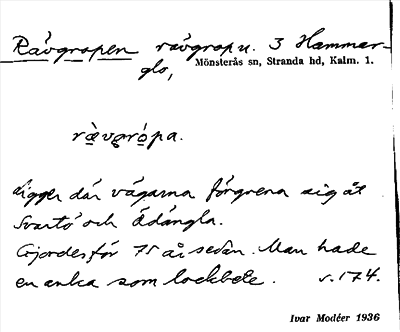 Rävgropen rävgrop u. 3 Hammar-
glo,
Mönsterås sn, Stranda hd, Kalm. l.
ræ̀vgrópa.
Ligger där vägarna förgrena sig åt
Svartö och Ödängla.
Gjordes för 75 år sedan. Man hade
en anka som lockbete. s. 174.
Ivar Modéer 1936